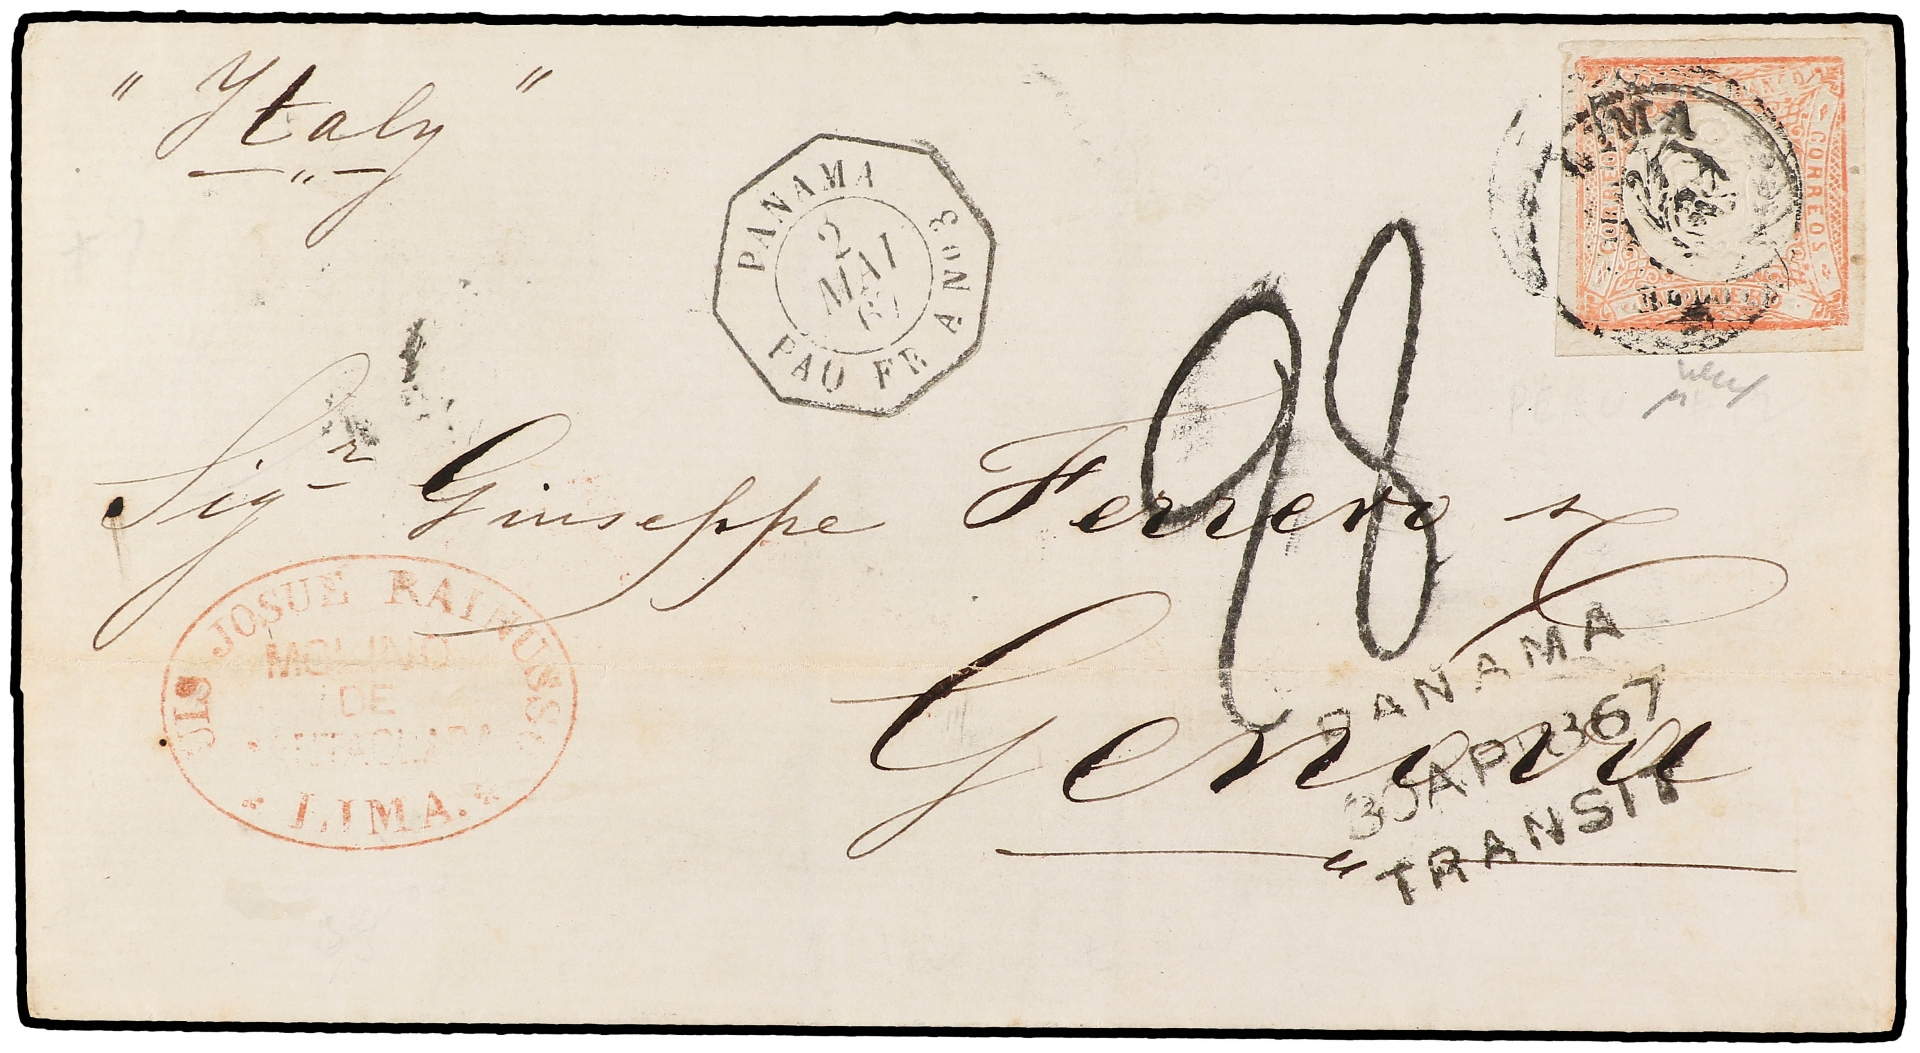 " Ytaly "
PANAMA
2
MAI
67
PAQ FR A Nº 3
LIMA
FRANCO
CORREOS
CORREOS
Sig.r Giuseppe Ferrero
98
Genova
"
JOSUE RAINUSSO
MOLINO
DE
LIMA.
PANAMA
30 AP 1867
TRANSIT